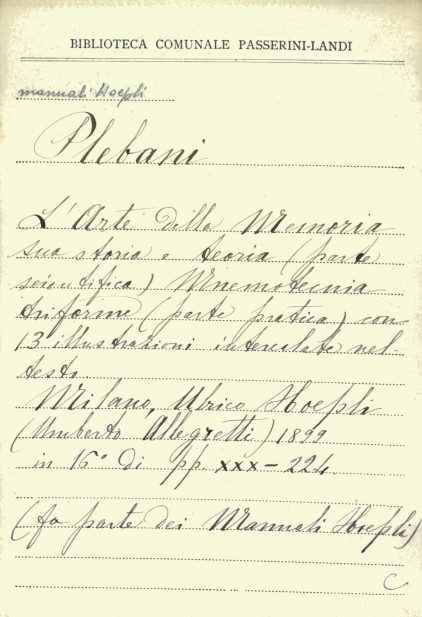 BIBLIOTECA COMUNALE PASSERINI-LANDI
manuali Hoepli
Plebani
L'Arte della Memoria
sua storia e teoria (parte
scientifica) Mnemotecnia
triforme (parte pratica) con
13 illustrazioni intercalate nel
testo.
Milano, Ulrico Hoepli
(Umberto Allegretti) 1899
in 16° di pp. XXX-224.
(fa parte dei Manuali Hoepli)
C